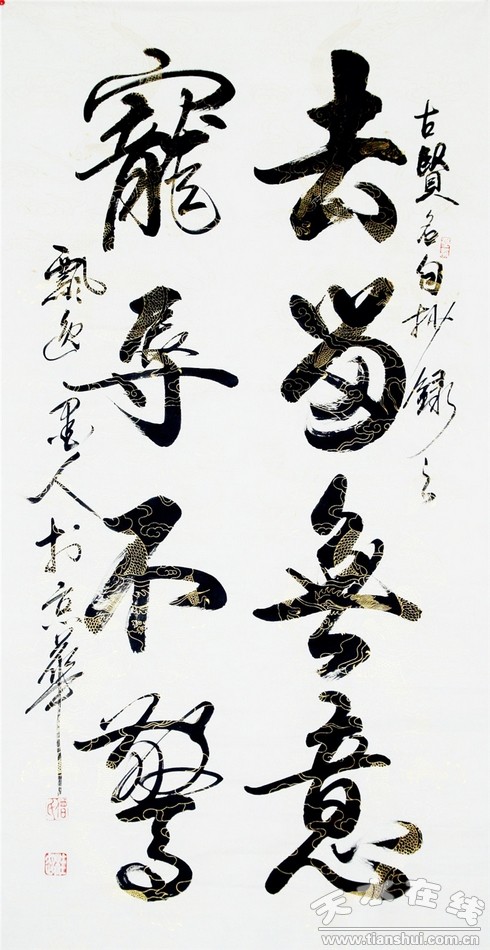 古賢名句抄錄之
去留無意
寵辱不驚
飄逸墨人於京華
天水在线
www.tianshui.com.cn